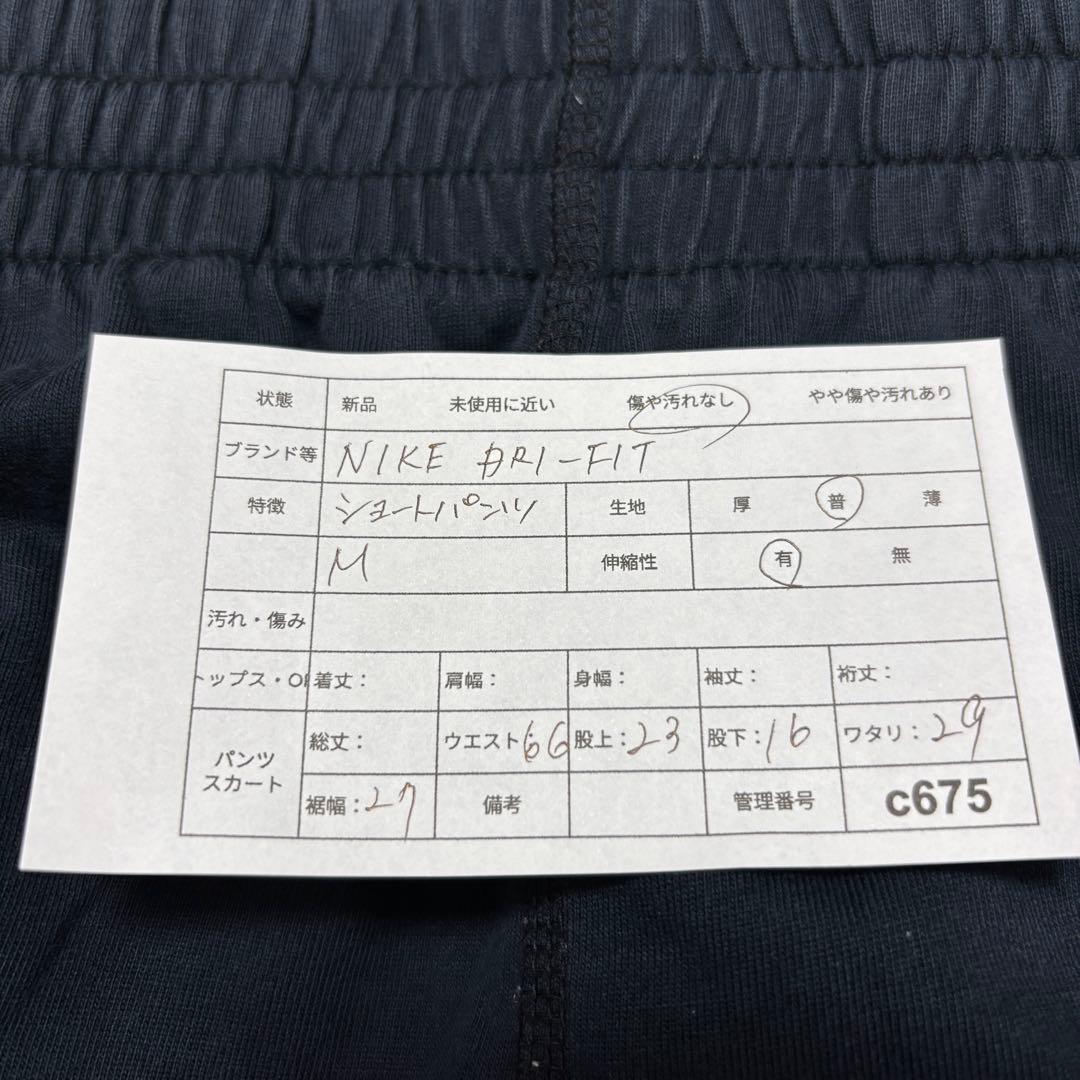 状態 新品 未使用に近い 傷や汚れなし やや傷や汚れあり
ブランド等 NIKE DRI-FIT
特徴 ショートパンツ 生地 厚 普 薄
M 伸縮性 有 無
汚れ・傷み
トップス・OP 着丈： 肩幅： 身幅： 袖丈： 裄丈：
パンツ スカート 総丈： ウエスト：66 股上：23 股下：16 ワタリ：29
裾幅：27 備考 管理番号 c675